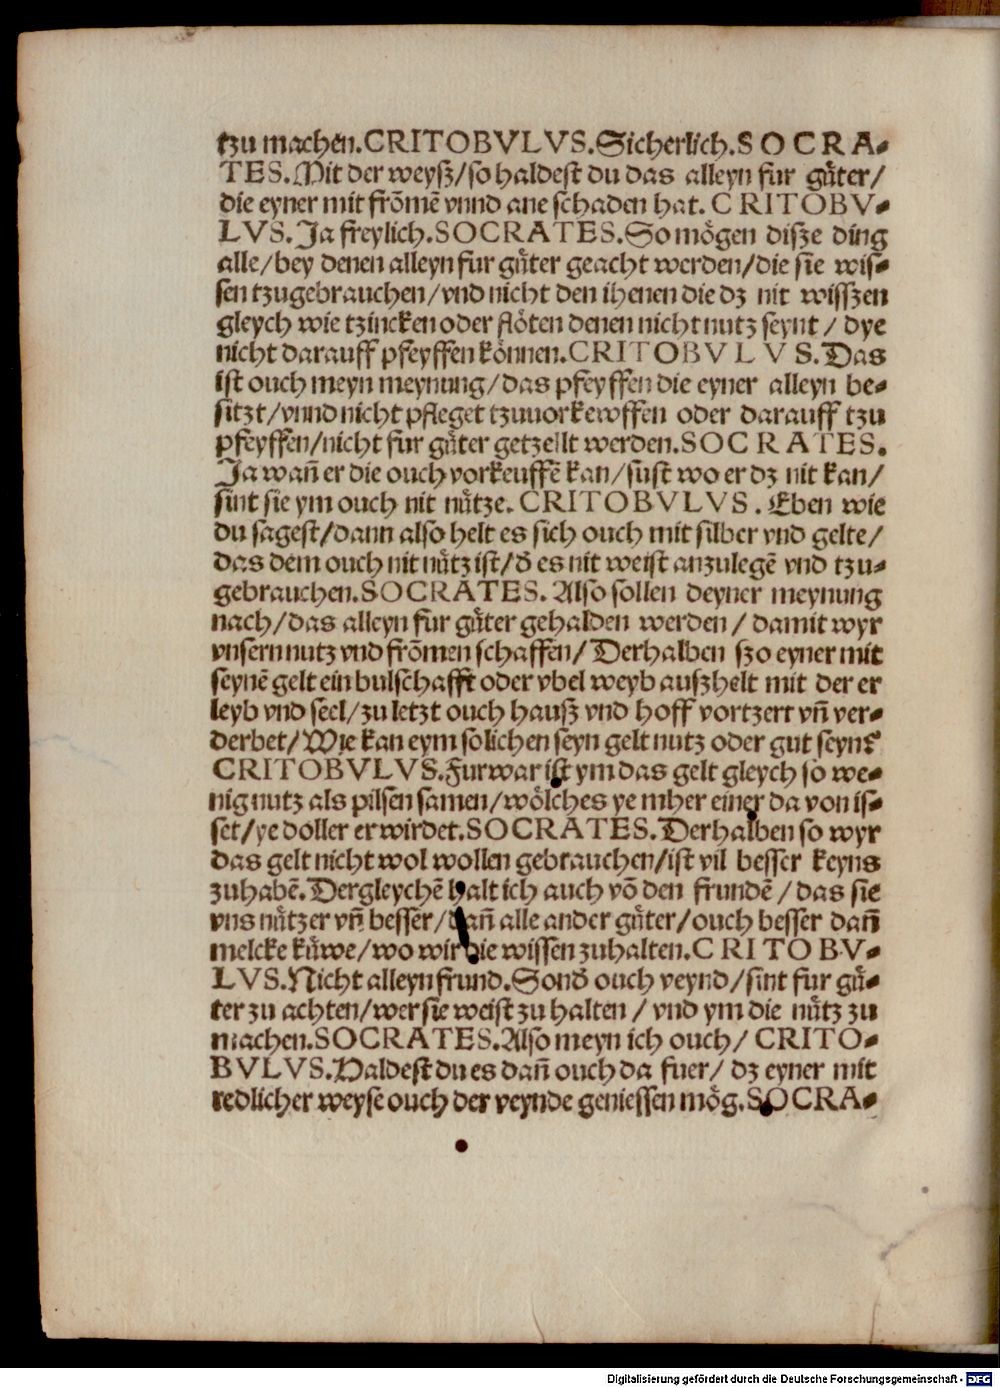 tzu machen.CRITOBVLVS.Sicherlich.SOCRA⸗
TES.Mit der weysz/so haldest du das alleyn fur guͤter/
die eyner mit frōmē vnnd ane schaden hat. CRITOBV⸗
LVS. Ja freylich.SOCRATES.So moͤgen disze ding
alle/bey denen alleyn fur guͤter geacht werden/die sie wis⸗
sen tzugebrauchen/vnd nicht den ihenen die dz nit wisszen
gleych wie tzincken oder floͤten denen nicht nutz seynt / dye
nicht darauff pfeyffen koͤnnen.CRITOBVLVS.Das
ist ouch meyn meynung/das pfeyffen die eyner alleyn be⸗
sitzt/vnnd nicht pfleget tzuuorkewffen oder darauff tzu
pfeyffen/nicht fur guͤter getzellt werden.SOCRATES.
Ja wan̄ er die ouch vorkeuffē kan/sust wo er dz nit kan/
sint sie ym ouch nit nuͤtze. CRITOBVLVS. Eben wie
du sagest/dann also helt es sich ouch mit silber vnd gelte/
das dem ouch nit nuͤtz ist/đ es nit weist anzulegē vnd tzu⸗
gebrauchen.SOCRATES. Also sollen deyner meynung
nach/das alleyn fur guͤter gehalden werden / damit wyr
vnsern nutz vnd frōmen schaffen/ Derhalben szo eyner mit
seynē gelt ein bulschafft oder vbel weyb auszhelt mit der er
leyb vnd seel/zu letzt ouch hausz vnd hoff vortzert vn̄ ver⸗
derbet/ Wie kan eym solichen seyn gelt nutz oder gut seyn?
CRITOBVLVS.Furwar ist ym das gelt gleych so we⸗
nig nutz als pilsen samen/woͤlches ye mher einer da von is⸗
set/ye doller er wirdet.SOCRATES.Derhalben so wyr
das gelt nicht wol wollen gebrauchen/ist vil besser keyns
zuhabē.Dergleychē halt ich auch vō den frundē / das sie
vns nuͤtzer vn̄ besser/dan̄ alle ander guͤter/ouch besser dan̄
melcke kuͤwe/wo wir die wissen zuhalten.CRITOBV⸗
LVS.Nicht alleyn frund.Sonđ ouch veynd/sint fur guͤ⸗
ter zu achten/wer sie weist zu halten / vnd ym die nuͤtz zu
machen.SOCRATES.Also meyn ich ouch/ CRITO⸗
BVLVS.Haldest du es dan̄ ouch da fuer/ dz eyner mit
redlicher weyse ouch der veynde geniessen moͤg.SOCRA⸗
Digitalisierung gefördert durch die Deutsche Forschungsgemeinschaft - DFG